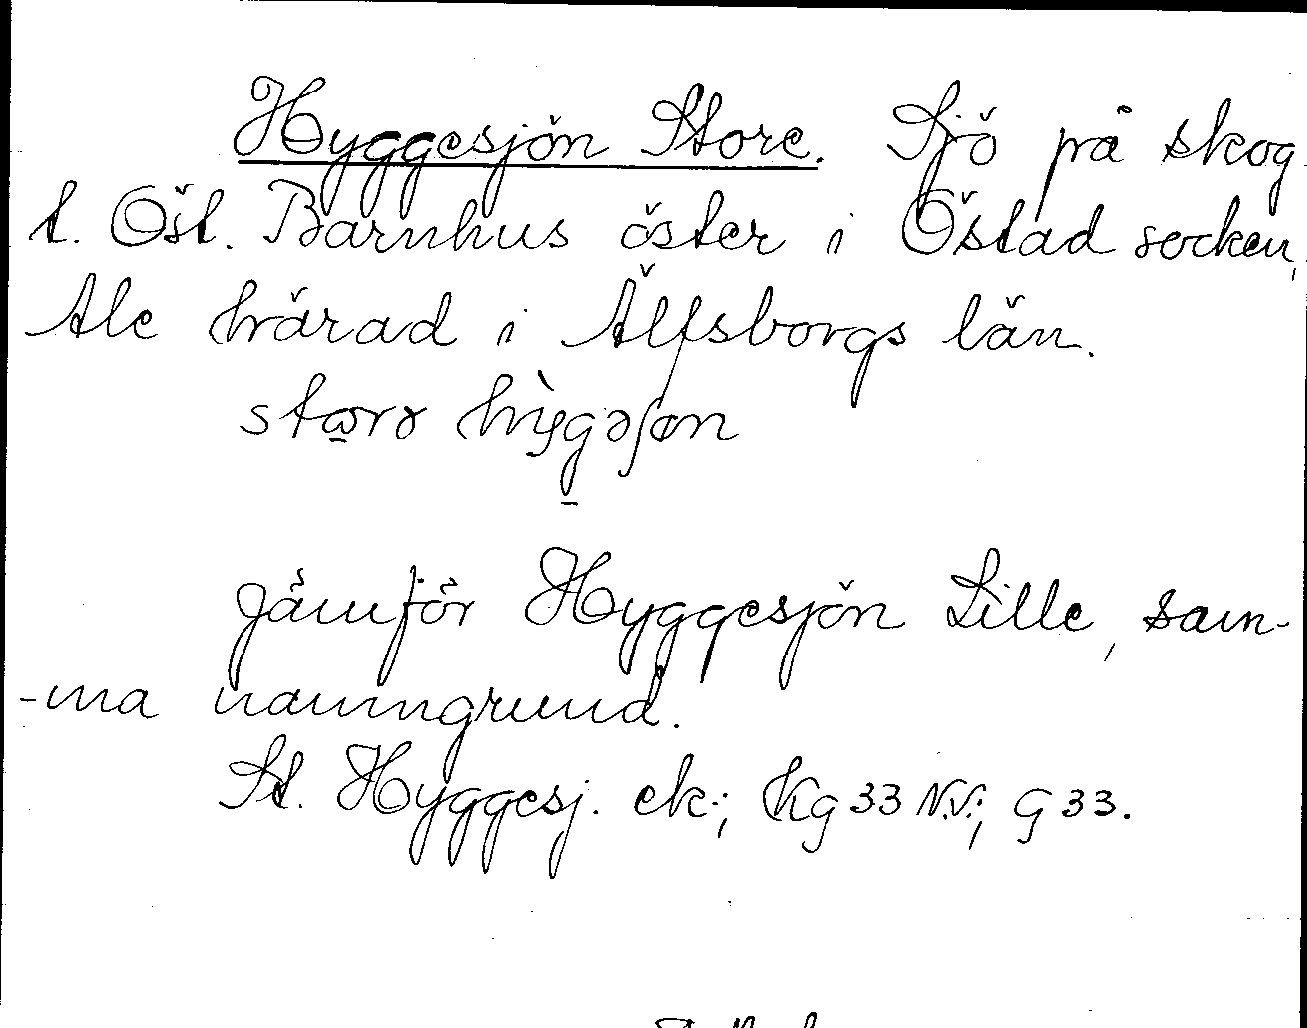 Hyggesjön Store. Sjö på skog
t. Öst. Barnhus öster i Östad socken,
Ale härad i Älfsborgs län.
jämför Hyggesjön Lille, sam-
-ma namngrund.
St. Hyggesj. ek.; Kg 33 N.V.; G 33.